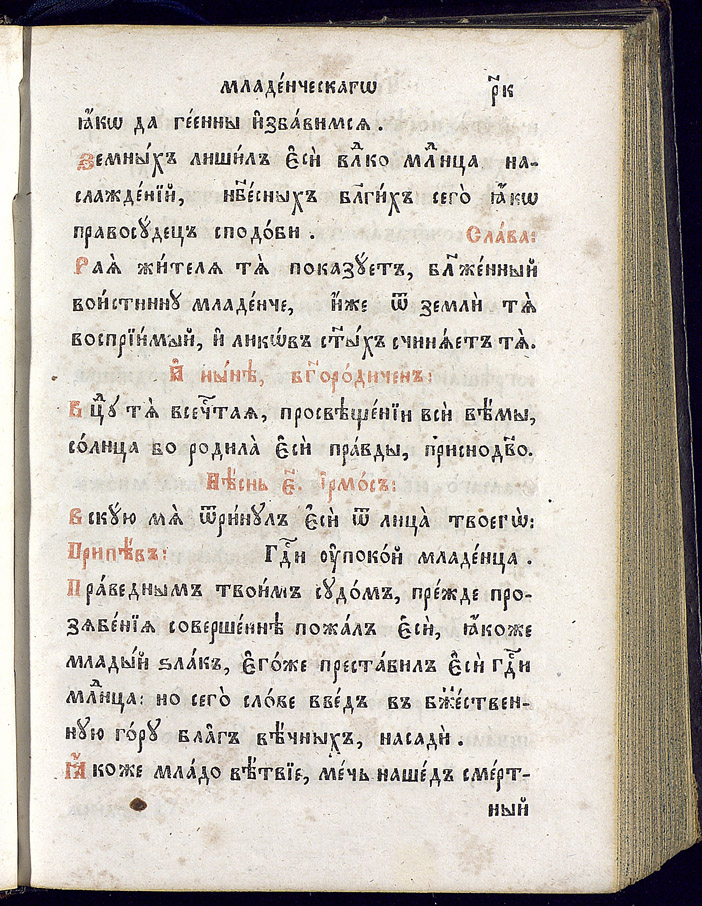 младе́нческагѡ р҃к
ꙗ҆́кѡ да гее́нны и҆зба́вимсѧ .
Земны́хъ лиши́лъ є҆сѝ вл҃ко мл҃нца на-
слажде́нїй, нб҃е́сныхъ бл҃ги́хъ сего̀ ꙗ҆́кѡ
правосу́децъ сподо́би . Сла́ва:
Раѧ̀ жи́телѧ тѧ̀ показꙋ́етъ, бл҃же́нный
вои́стиннꙋ младе́нче, и҆́же ѿ землѝ тѧ̀
воспрїи́мый, и҆ ликѡ́въ ст҃ы́хъ счинѧ́етъ тѧ̀.
И҆ ны́нѣ, бг҃оро́диченъ:
В цⷣꙋ тѧ̀ всечⷭ҇таѧ, просвѣще́нїи всѝ вѣ́мы,
со́лнца бо родила̀ є҆сѝ пра́вды, приснодв҃о.
Пѣ́снь є҃. і҆рмо́съ:
Вскꙋ́ю мѧ̀ ѿри́нꙋлъ є҆сѝ ѿ лица̀ твоегѡ̀:
Припѣ́въ: Гдⷭ҇и ᲂу҆поко́й младе́нца .
Пра́веднымъ твои́мъ сꙋдо́мъ, пре́жде про-
зѧбе́нїѧ соверше́ннѣ пожа́лъ є҆сѝ, ꙗ҆́коже
млады́й ѕла́къ, є҆го́же преста́вилъ є҆сѝ гдⷭ҇и
мл҃нца: но сего̀ сло́ве введѝ въ бж҃е́ствен-
нꙋю го́рꙋ бла́гъ вѣ́чныхъ, насадѝ .
Ꙗ҆́коже мла́до вѣ́твїе, ме́чь наше́дъ сме́рт-
ный